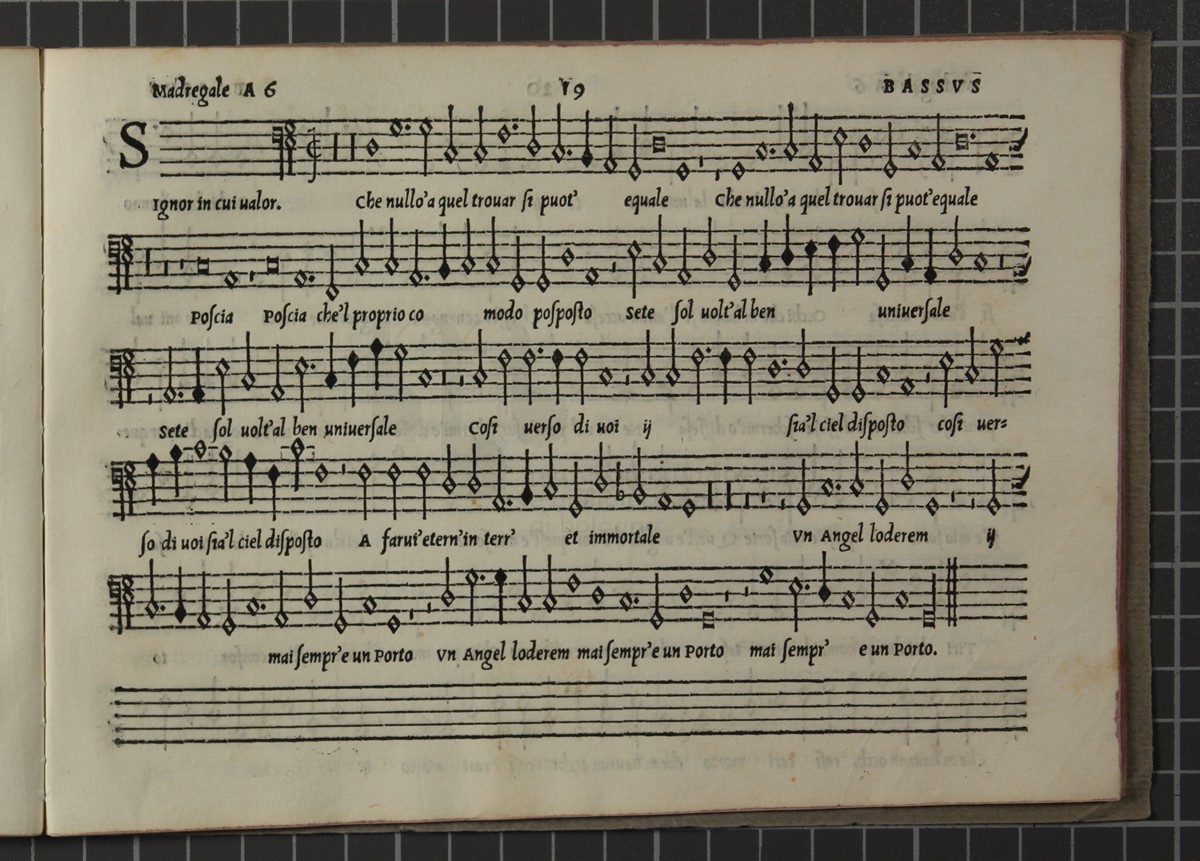 Madregale A 6 19 BASSVS
SIgnor in cui ualor. Che nullo'a quel trouar ſi puot' equale Che nullo'a quel trouar ſi puot'equale
Poſcia Poſcia che'l proprio co modo poſpoſto Sete ſol uolt'al ben uniuerſale
Sete ſol uolt'al ben uniuerſale Coſi uerſo di uoi ij ſia'l ciel diſpoſto coſi uer=
ſo di uoi ſia'l ciel diſpoſto A farui'etern'in terr' et immortale Vn Angel loderem ij
mai ſempr'e un Porto Vn Angel loderem mai ſempr'e un Porto mai ſempr' e un Porto.